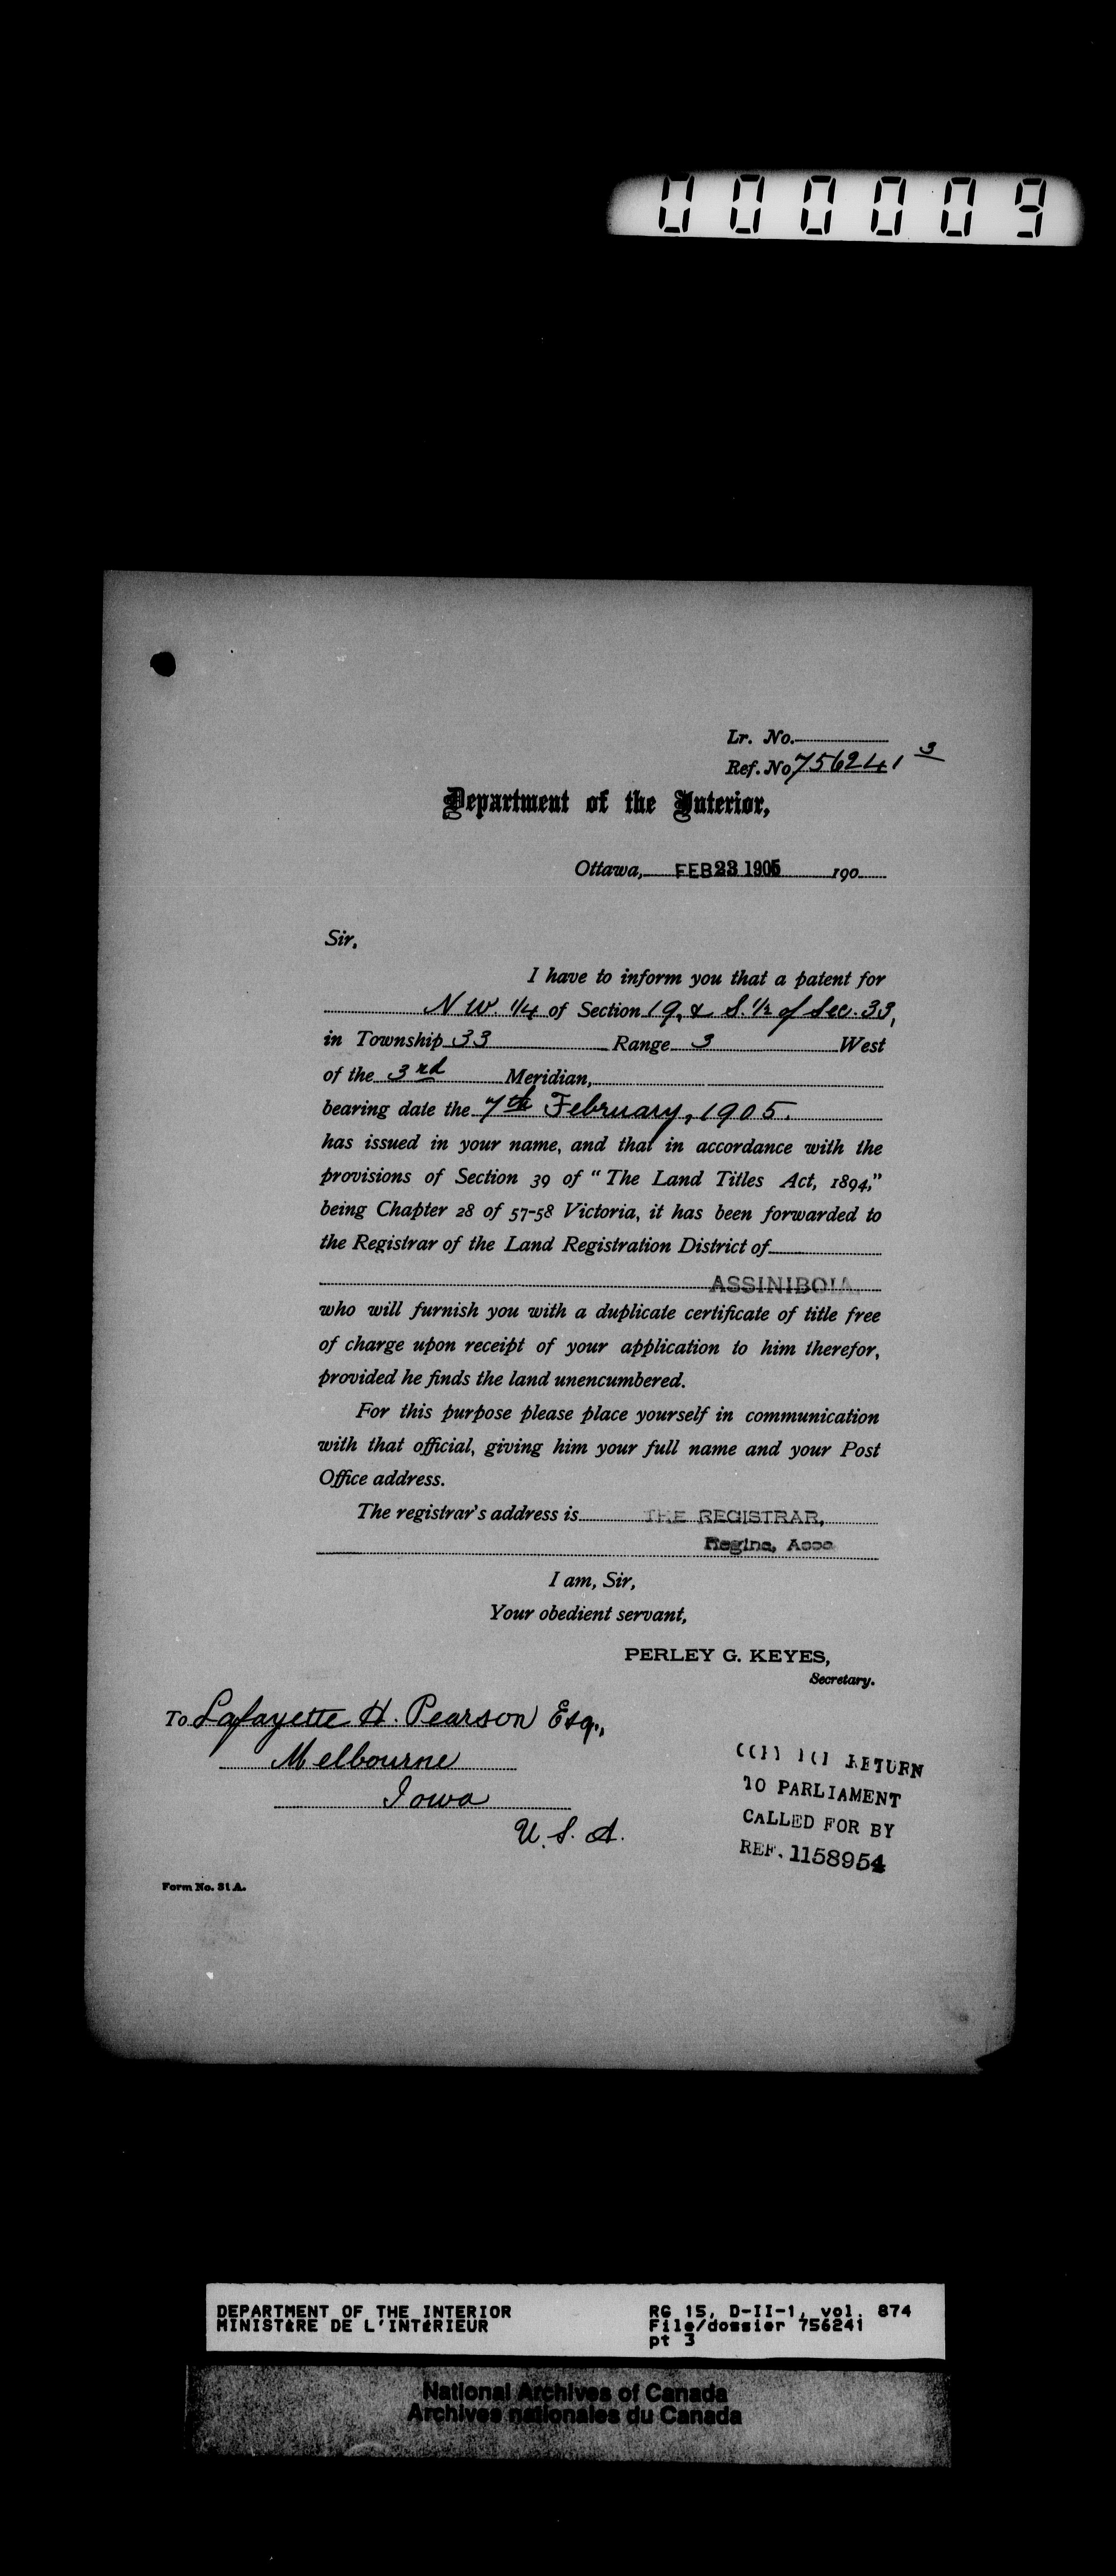 000009
Lr. No.
Ref. No 756241 3
Department of the Interior,
Ottawa, FEB 23 1905 190
Sir,
I have to inform you that a patent for
N W. 1/4 of Section 19, & S. 1/2 of Sec. 33,
in Township 33 Range 3 West
of the 3rd Meridian,
bearing date the 7th February, 1905.
has issued in your name, and that in accordance with the
provisions of Section 39 of "The Land Titles Act, 1894,"
being Chapter 28 of 57-58 Victoria, it has been forwarded to
the Registrar of the Land Registration District of
ASSINIBOIA
who will furnish you with a duplicate certificate of title free
of charge upon receipt of your application to him therefor,
provided he finds the land unencumbered.
For this purpose please place yourself in communication
with that official, giving him your full name and your Post
Office address.
The registrar's address is THE REGISTRAR,
Regina, Assa
I am, Sir,
Your obedient servant,
PERLEY G. KEYES,
Secretary.
To Lafayette H. Pearson Esq.,
Melbourne
Iowa
U. S. A.
RETURN
TO PARLIAMENT
CALLED FOR BY
REF. 1158954
Form No. 31 A.
DEPARTMENT OF THE INTERIOR
MINISTÈRE DE L'INTÉRIEUR
RG 15, D-II-1, vol. 874
File/dossier 756241
pt 3
National Archives of Canada
Archives nationales du Canada